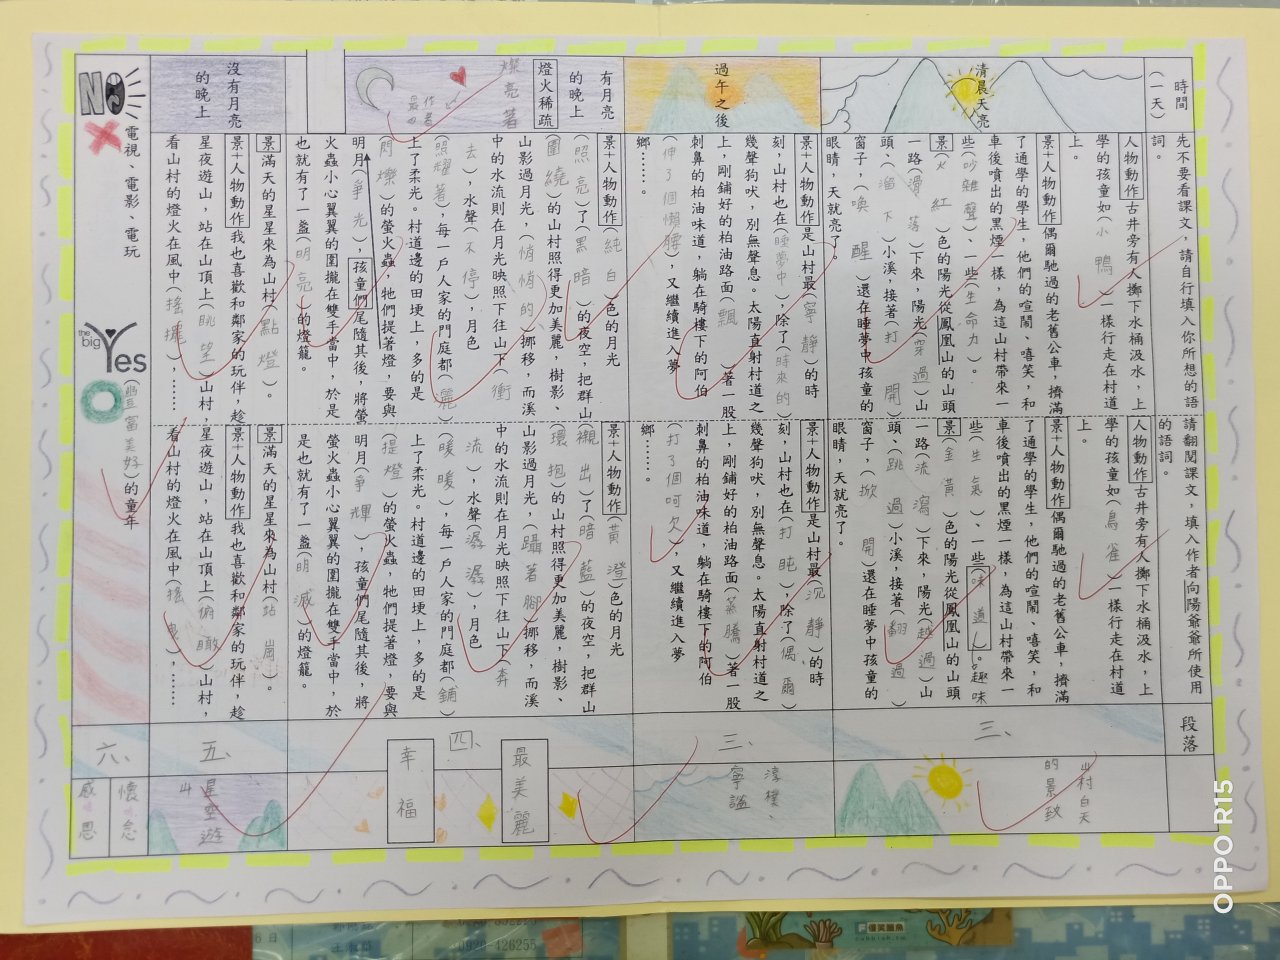 時間
(一天)
先不要看課文，請自行填入你所想的語
詞。
請翻閱課文，填入作者向陽爺爺所使用
的語詞。
段落
清晨天亮
人物動作古井旁有人擲下水桶汲水，上
學的孩童如(小鴨)一樣行走在村道
上。
景+人物動作偶爾馳過的老舊公車，擠滿
了通學的學生，他們的喧鬧、嘻笑，和
車後噴出的黑煙一樣，為這山村帶來一
些(吵雜聲)、一些(生命力)。
景(火紅)色的陽光從鳳凰山的山頭
一路(滑落)下來，陽光(穿過)山
頭、(溜下)小溪，接著(打開)
窗子，(喚醒)還在睡夢中孩童的
眼睛，天就亮了。
人物動作古井旁有人擲下水桶汲水，上
學的孩童如(鳥雀)一樣行走在村道
上。
景+人物動作偶爾馳過的老舊公車，擠滿
了通學的學生，他們的喧鬧、嘻笑，和
車後噴出的黑煙一樣，為這山村帶來一
些(生氣)、一些(味道)。趣味
景(金黃)色的陽光從鳳凰山的山頭
一路(流瀉)下來，陽光(越過)山
頭、(跳過)小溪，接著(翻過)
窗子，(掀開)還在睡夢中孩童的
眼睛，天就亮了。
三、
山村白天
的景致
過午之後
景+人物動作是山村最(寧靜)的時
刻，山村也在(睡夢中)，除了(時來的)
幾聲狗吠，別無聲息。太陽直射村道之
上，剛鋪好的柏油路面(飄)著一股
刺鼻的柏油味道，躺在騎樓下的阿伯
(伸了個懶腰)，又繼續進入夢
鄉……。
景+人物動作是山村最(沉靜)的時
刻，山村也在(打盹)，除了(偶爾)
幾聲狗吠，別無聲息。太陽直射村道之
上，剛鋪好的柏油路面(蒸騰)著一股
刺鼻的柏油味道，躺在騎樓下的阿伯
(打了個呵欠)，又繼續進入夢
鄉……。
三、
淳樸、
寧謐
有月亮
的晚上
燈火稀疏
燦亮著
作者
最
景+人物動作(純白)色的月光
(照亮)了(黑暗)的夜空，把群山
(圍繞)的山村照得更加美麗，樹影、
山影過月光，(悄悄的)挪移，而溪
中的水流則在月光映照下往山下(衝
去)，水聲(不停)，月色
(照耀著)，每一戶人家的門庭都(灑)
上了柔光。村道邊的田埂上，多的是
(閃爍)的螢火蟲，牠們提著燈，要與
明月(爭光)，孩童們尾隨其後，將螢
火蟲小心翼翼的圍攏在雙手當中，於是
也就有了一盞(明亮)的燈籠。
景+人物動作(黃澄)色的月光
(襯出)了(暗藍)的夜空，把群山
(環抱)的山村照得更加美麗，樹影、
山影過月光，(躡著腳)挪移，而溪
中的水流則在月光映照下往山下(奔
流)，水聲(潺潺)，月色
(暖暖)，每一戶人家的門庭都(鋪)
上了柔光。村道邊的田埂上，多的是
(提燈)的螢火蟲，牠們提著燈，要與
明月(爭輝)，孩童們尾隨其後，將
螢火蟲小心翼翼的圍攏在雙手當中，於
是也就有了一盞(明滅)的燈籠。
四、
最美麗
幸福
沒有月亮
的晚上
景滿天的星星來為山村(點燈)。
景+人物動作我也喜歡和鄰家的玩伴，趁
星夜遊山，站在山頂上(眺望)山村，
看山村的燈火在風中(搖擺)，……
景滿天的星星來為山村(站崗)。
景+人物動作我也喜歡和鄰家的玩伴，趁
星夜遊山，站在山頂上(俯瞰)山村，
看山村的燈火在風中(搖曳)，……
五、
星空遊
山
NO
電視、電影、電玩
the big Yes
(豐富美好)的童年
六、
懷念
感恩
0920-426255
OPPO R15